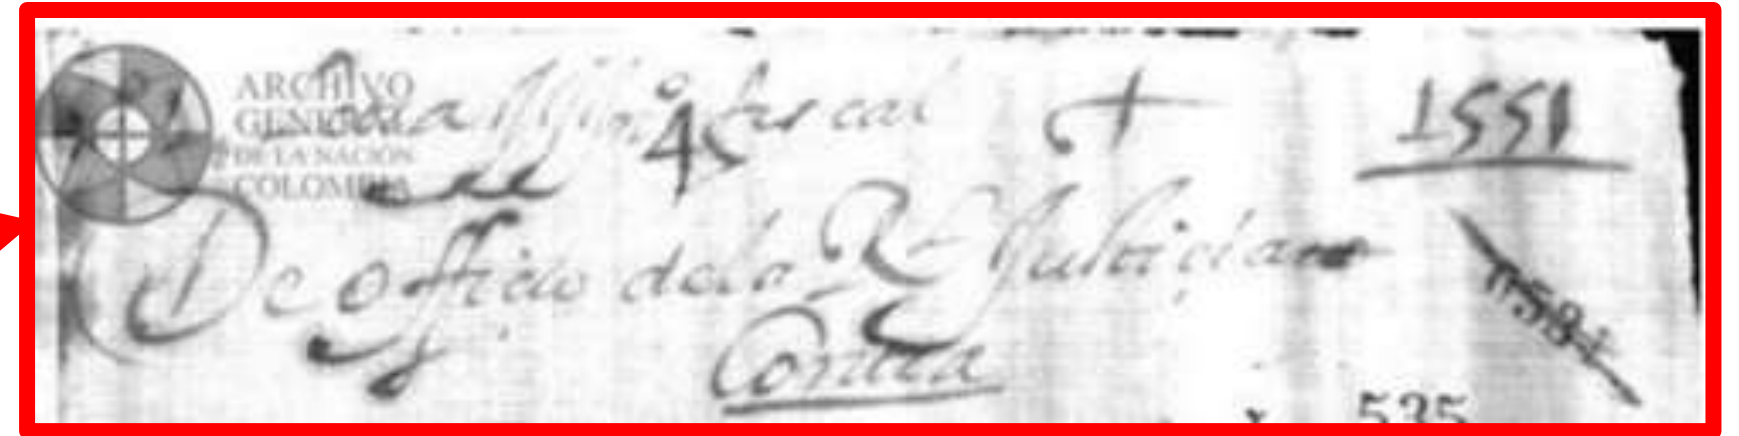 ARCHIVO
GENERAL
DE LA NACIÓN
COLOMBIA
fiscal
45
1551
De officio de la Rl Justicia
Contra
535